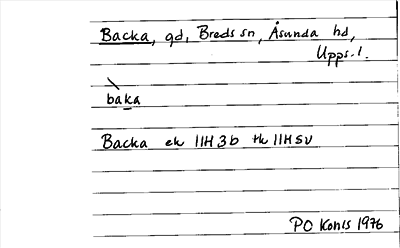 Backa, gd, Breds sn, Åsunda hd,
Upps. l.
baka
Backa ek 11H 3b tk 11H SV
PO Konis 1976